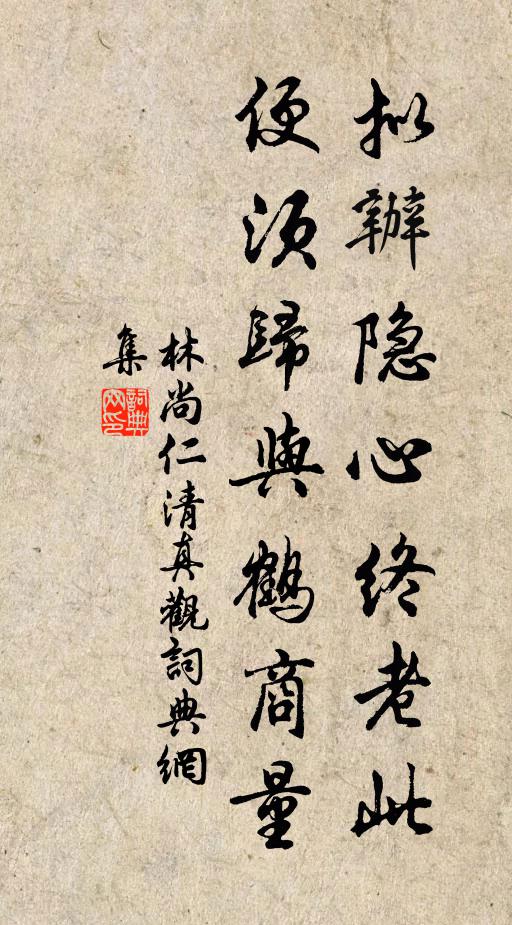 拟辦隐心终老此
便须歸與鶴商量
林尚仁清真觀詞典網
集
詞典
网印